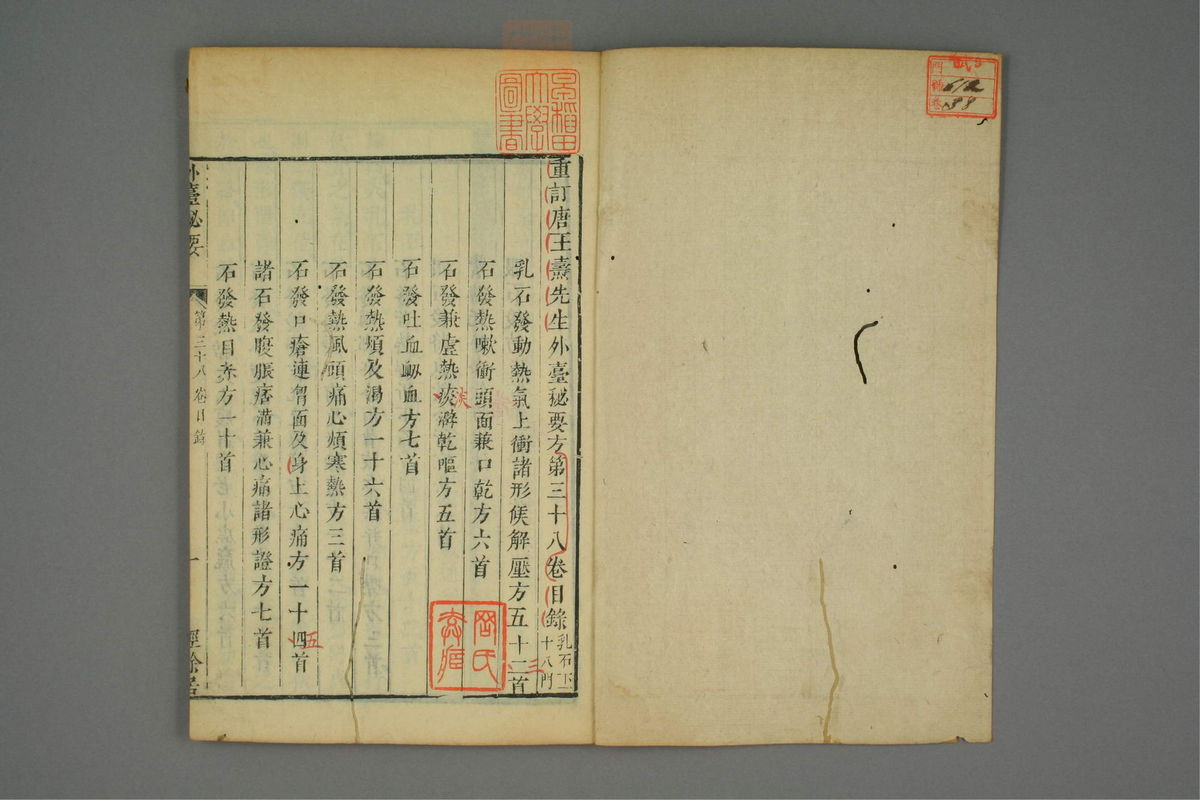 重訂唐王燾先生外臺秘要方第三十八卷目錄 乳石下 十八門
乳石發動熱氣上衝諸形候解壓方五十二首
三
石發熱嗽衝頭面兼口乾方六首
石發兼虛熱痰澼乾嘔方五首
石發吐血衂血方七首
石發熱煩及渴方一十六首
石發熱風頭痛心煩寒熱方三首
石發口瘡連胷面及身上心痛方一十四首
五
諸石發腹脹痞滿兼心痛諸形證方七首
石發熱目赤方一十首
外臺秘要
第三十八卷目錄
一
經餘居
早稻田大學圖書
門
號
卷